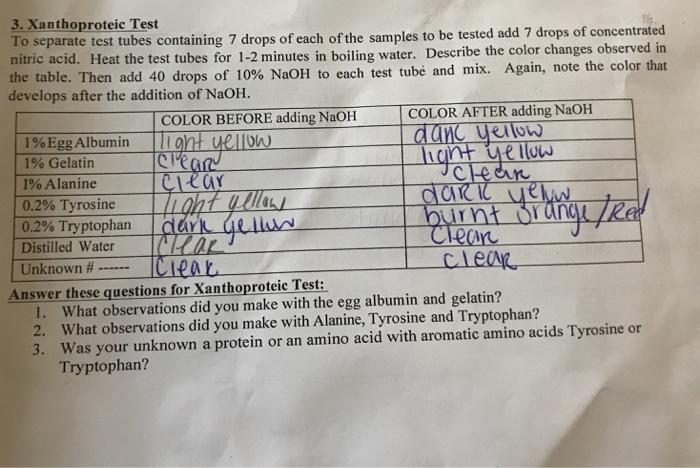 3. Xanthoproteic Test
To separate test tubes containing 7 drops of each of the samples to be tested add 7 drops of concentrated
nitric acid. Heat the test tubes for 1-2 minutes in boiling water. Describe the color changes observed in
the table. Then add 40 drops of 10% NaOH to each test tube and mix. Again, note the color that
develops after the addition of NaOH.
COLOR BEFORE adding NaOH COLOR AFTER adding NaOH
1% Egg Albumin light yellow dark yellow
1% Gelatin Clear light yellow
1% Alanine Clear Clear
0.2% Tyrosine light yellow dark yellow
0.2% Tryptophan dark yellow burnt orange/Red
Distilled Water Clear Clear
Unknown # ------ Clear Clear
Answer these questions for Xanthoproteic Test:
1. What observations did you make with the egg albumin and gelatin?
2. What observations did you make with Alanine, Tyrosine and Tryptophan?
3. Was your unknown a protein or an amino acid with aromatic amino acids Tyrosine or
Tryptophan?